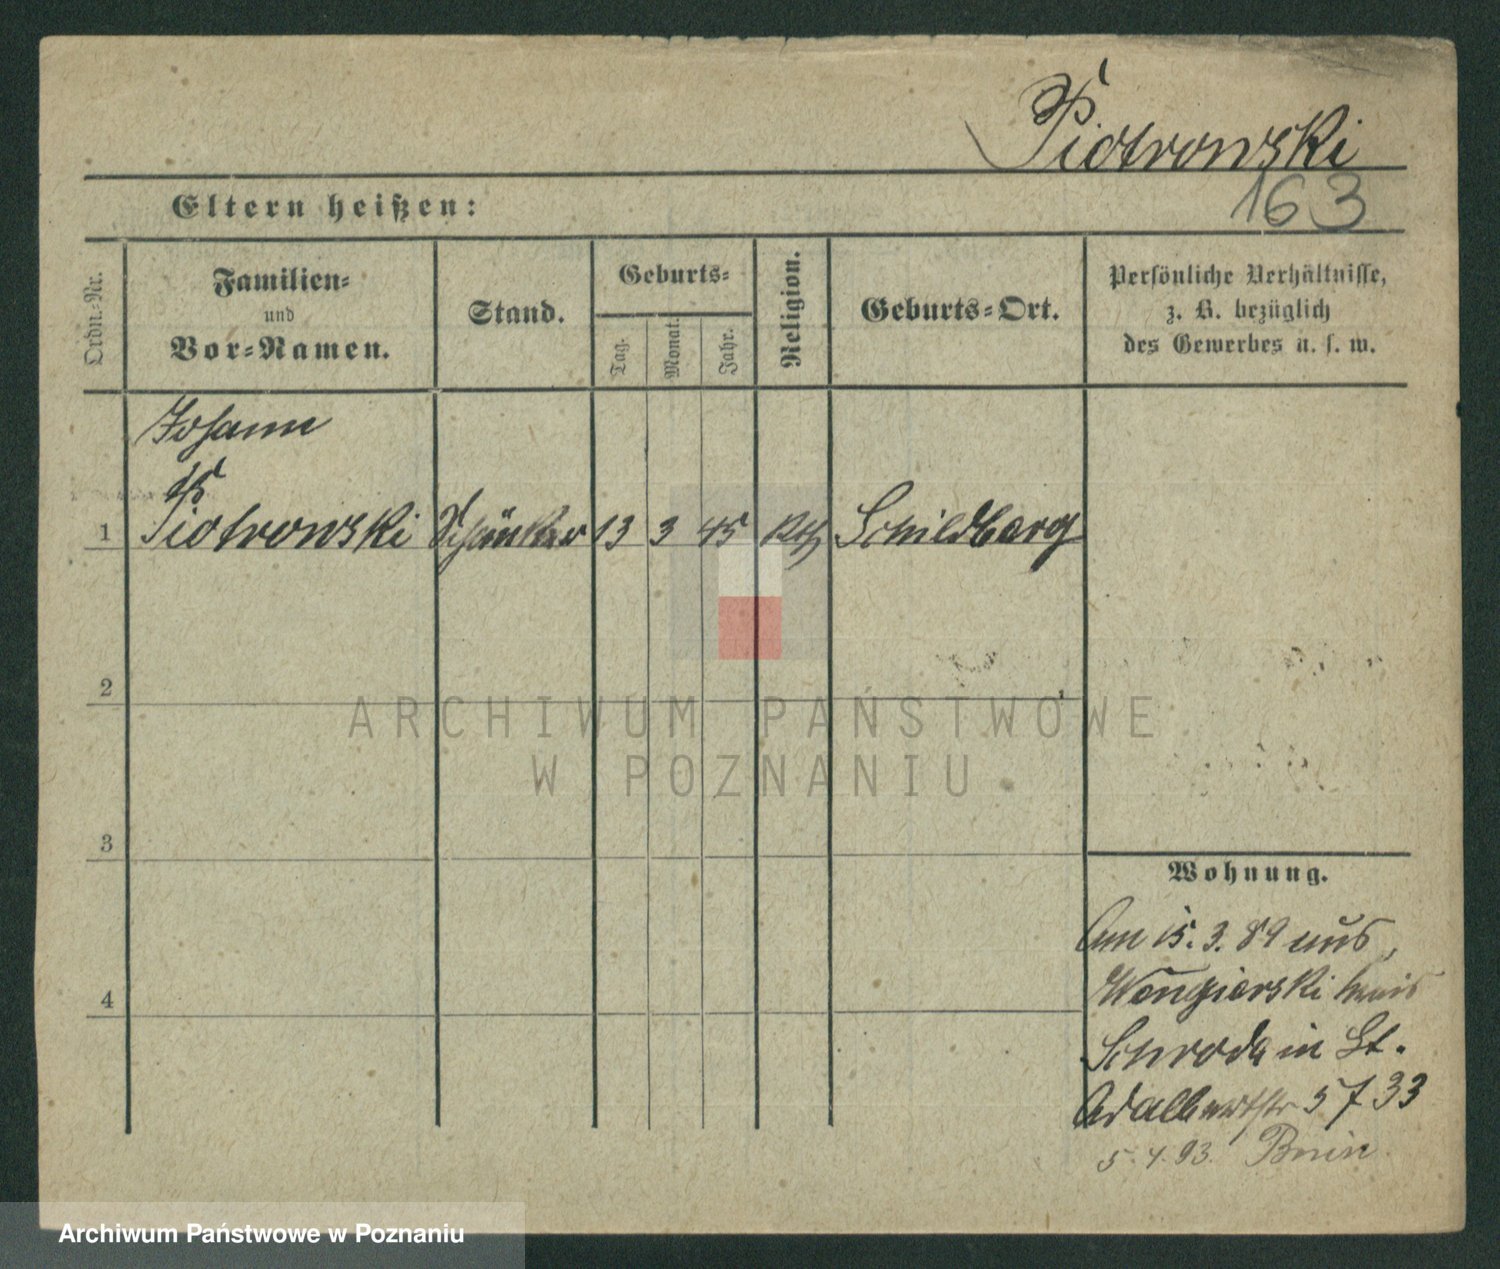 Piotrowski
163
Eltern heißen:
Ordn.-Nr.
Familien-
und
Vor-Namen.
Stand.
Geburts-
Tag.
Monat.
Jahr.
Religion.
Geburts-Ort.
Persönliche Verhältnisse,
z. B. bezüglich
des Gewerbes u. s. w.
Johann
1 Piotrowski Schänker 13 3 45 kth Schildberg
2
3
4
ARCHIWUM PAŃSTWOWE
W POZNANIU
Wohnung.
Am 15. 3. 89 aus
Wengierski Kreis
Schroda in St.
Adalbertstr 5 / 33
5. 4. 93. Bnin
Archiwum Państwowe w Poznaniu